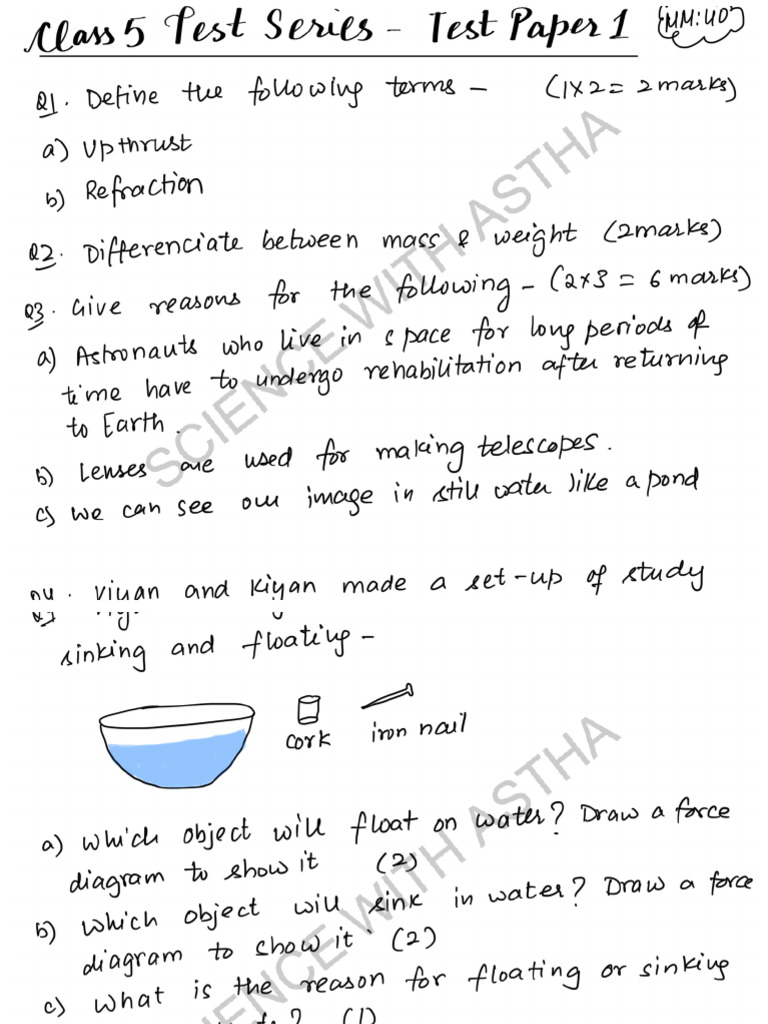 Class 5 Test Series - Test Paper 1 {MM:40}
Q1. Define the following terms - (1X2 = 2 marks)
a) Upthrust
b) Refraction
Q2. Differenciate between mass & weight (2marks)
Q3. Give reasons for the following - (2x3 = 6 marks)
a) Astronauts who live in space for long periods of
time have to undergo rehabilitation after returning
to Earth.
b) Lenses are used for making telescopes.
c) we can see our image in still water like a pond
Q4. Viyan and Kiyan made a set-up of study
sinking and floating -
cork
iron nail
a) which object will float on water? Draw a force
diagram to show it (2)
b) which object will sink in water? Draw a force
diagram to show it. (2)
c) what is the reason for floating or sinking
? (1)
SCIENCE WITH ASTHA
SCIENCE WITH ASTHA